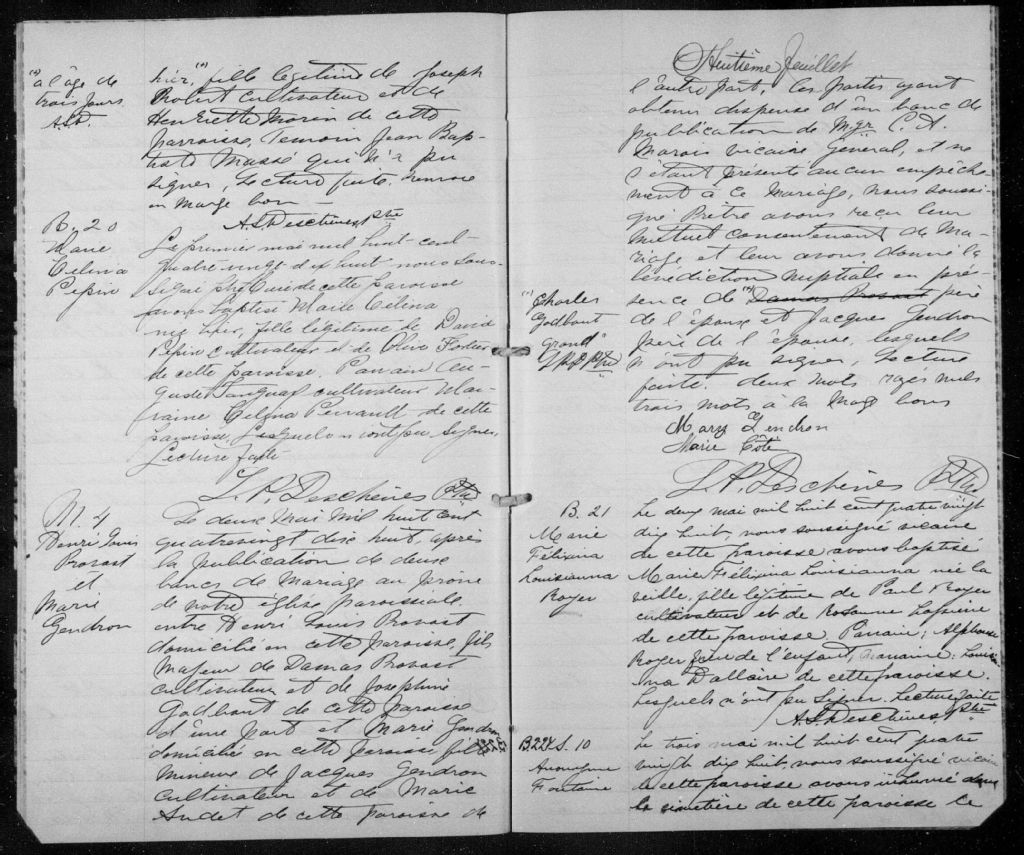 (a)
à l'âge de
trois jours.
A.S.D.
hier, (a) fille légitime de Joseph
Robert cultivateur et de
Henriette Morin de cette
parroisse, Temoin Jean Bap-
tiste Massé qui n'a pu
signer, Lecture faite. renvoie
en marge bon —
A.S. Deschènes, Ptre
B. 20
Marie
Célina
Pepin
Le premier mai mil huit-cent-
quatre vingt dix huit nous sous-
signé ptre Curé de cette paroisse
avons baptisé Marie Célina
née hier, fille légitime de David
Pepin cultivateur et de Olive Fortier
de cette paroisse. Parrain Au-
guste Tanguay cultivateur Mar-
raine Célina Perrault de cette
paroisse. Lesquels n'ont pu signer,
Lecture faite
L. P. Deschènes Ptre
M. 4
Henri Louis
Provost
et
Marie
Gendron
Le deux Mai mil huit cent
quatrevingt dix huit, après
la publication de deux
bancs de Mariage au prône
de notre église paroissiale.
entre Henri Louis Provost
domicilié en cette paroisse, fils
majeur de Damas Provost
cultivateur et de Josephine
Godbout de cette paroisse
d'une part et Marie Gendron
domicilié en cette paroisse fille
mineure de Jacques Gendron
cultivateur et de Marie
Audet de cette paroisse de
Huitième feuillet
l'autre part, Les parties ayant
obtenu dispense d'un banc de
publication de Mgr C. A.
Marois vicaire Général, et ne
s'étant présenté aucun empêche-
ment à ce Mariage, nous soussi-
gné Prêtre avons reçu leur
mutuel consentement de Ma-
riage et leur avons donné la
bénédiction nuptiale en pré-
sence de (a) Damas Provost père
de l'époux et Jacques Gendron
père de l'épouse, lesquels
n'ont pu signer, Lecture
faite. deux mots rayés nuls
trois mots à la marg bons
(a) Charles
Godbout
Grand
L.P.D. Ptre
Mary Gendron
Marie Côté
L. P. Deschènes Ptre
B. 21
Marie
Félixina
Louisianna
Royer
Le deux mai mil huit cent quatre vingt
dix huit, nous soussigné vicaire
de cette paroisse avons baptisé
Marie Félixina Louisianna née la
veille, fille légitime de Paul Royer
cultivateur et de Rosanne
de cette paroisse. Parrain; Alphonse
Royer frère de l'enfant, marraine;
Dallaire de cette paroisse.
Lesquels n'ont pu signer. Lecture faite
A.S. Deschènes Ptre
B. 22 & S. 10
Anonyme
Fontaine
Le trois mai mil huit cent quatre
vingt dix huit, nous soussigné vicaire
de cette paroisse avons inhumé dans
le cimetière de cette paroisse le